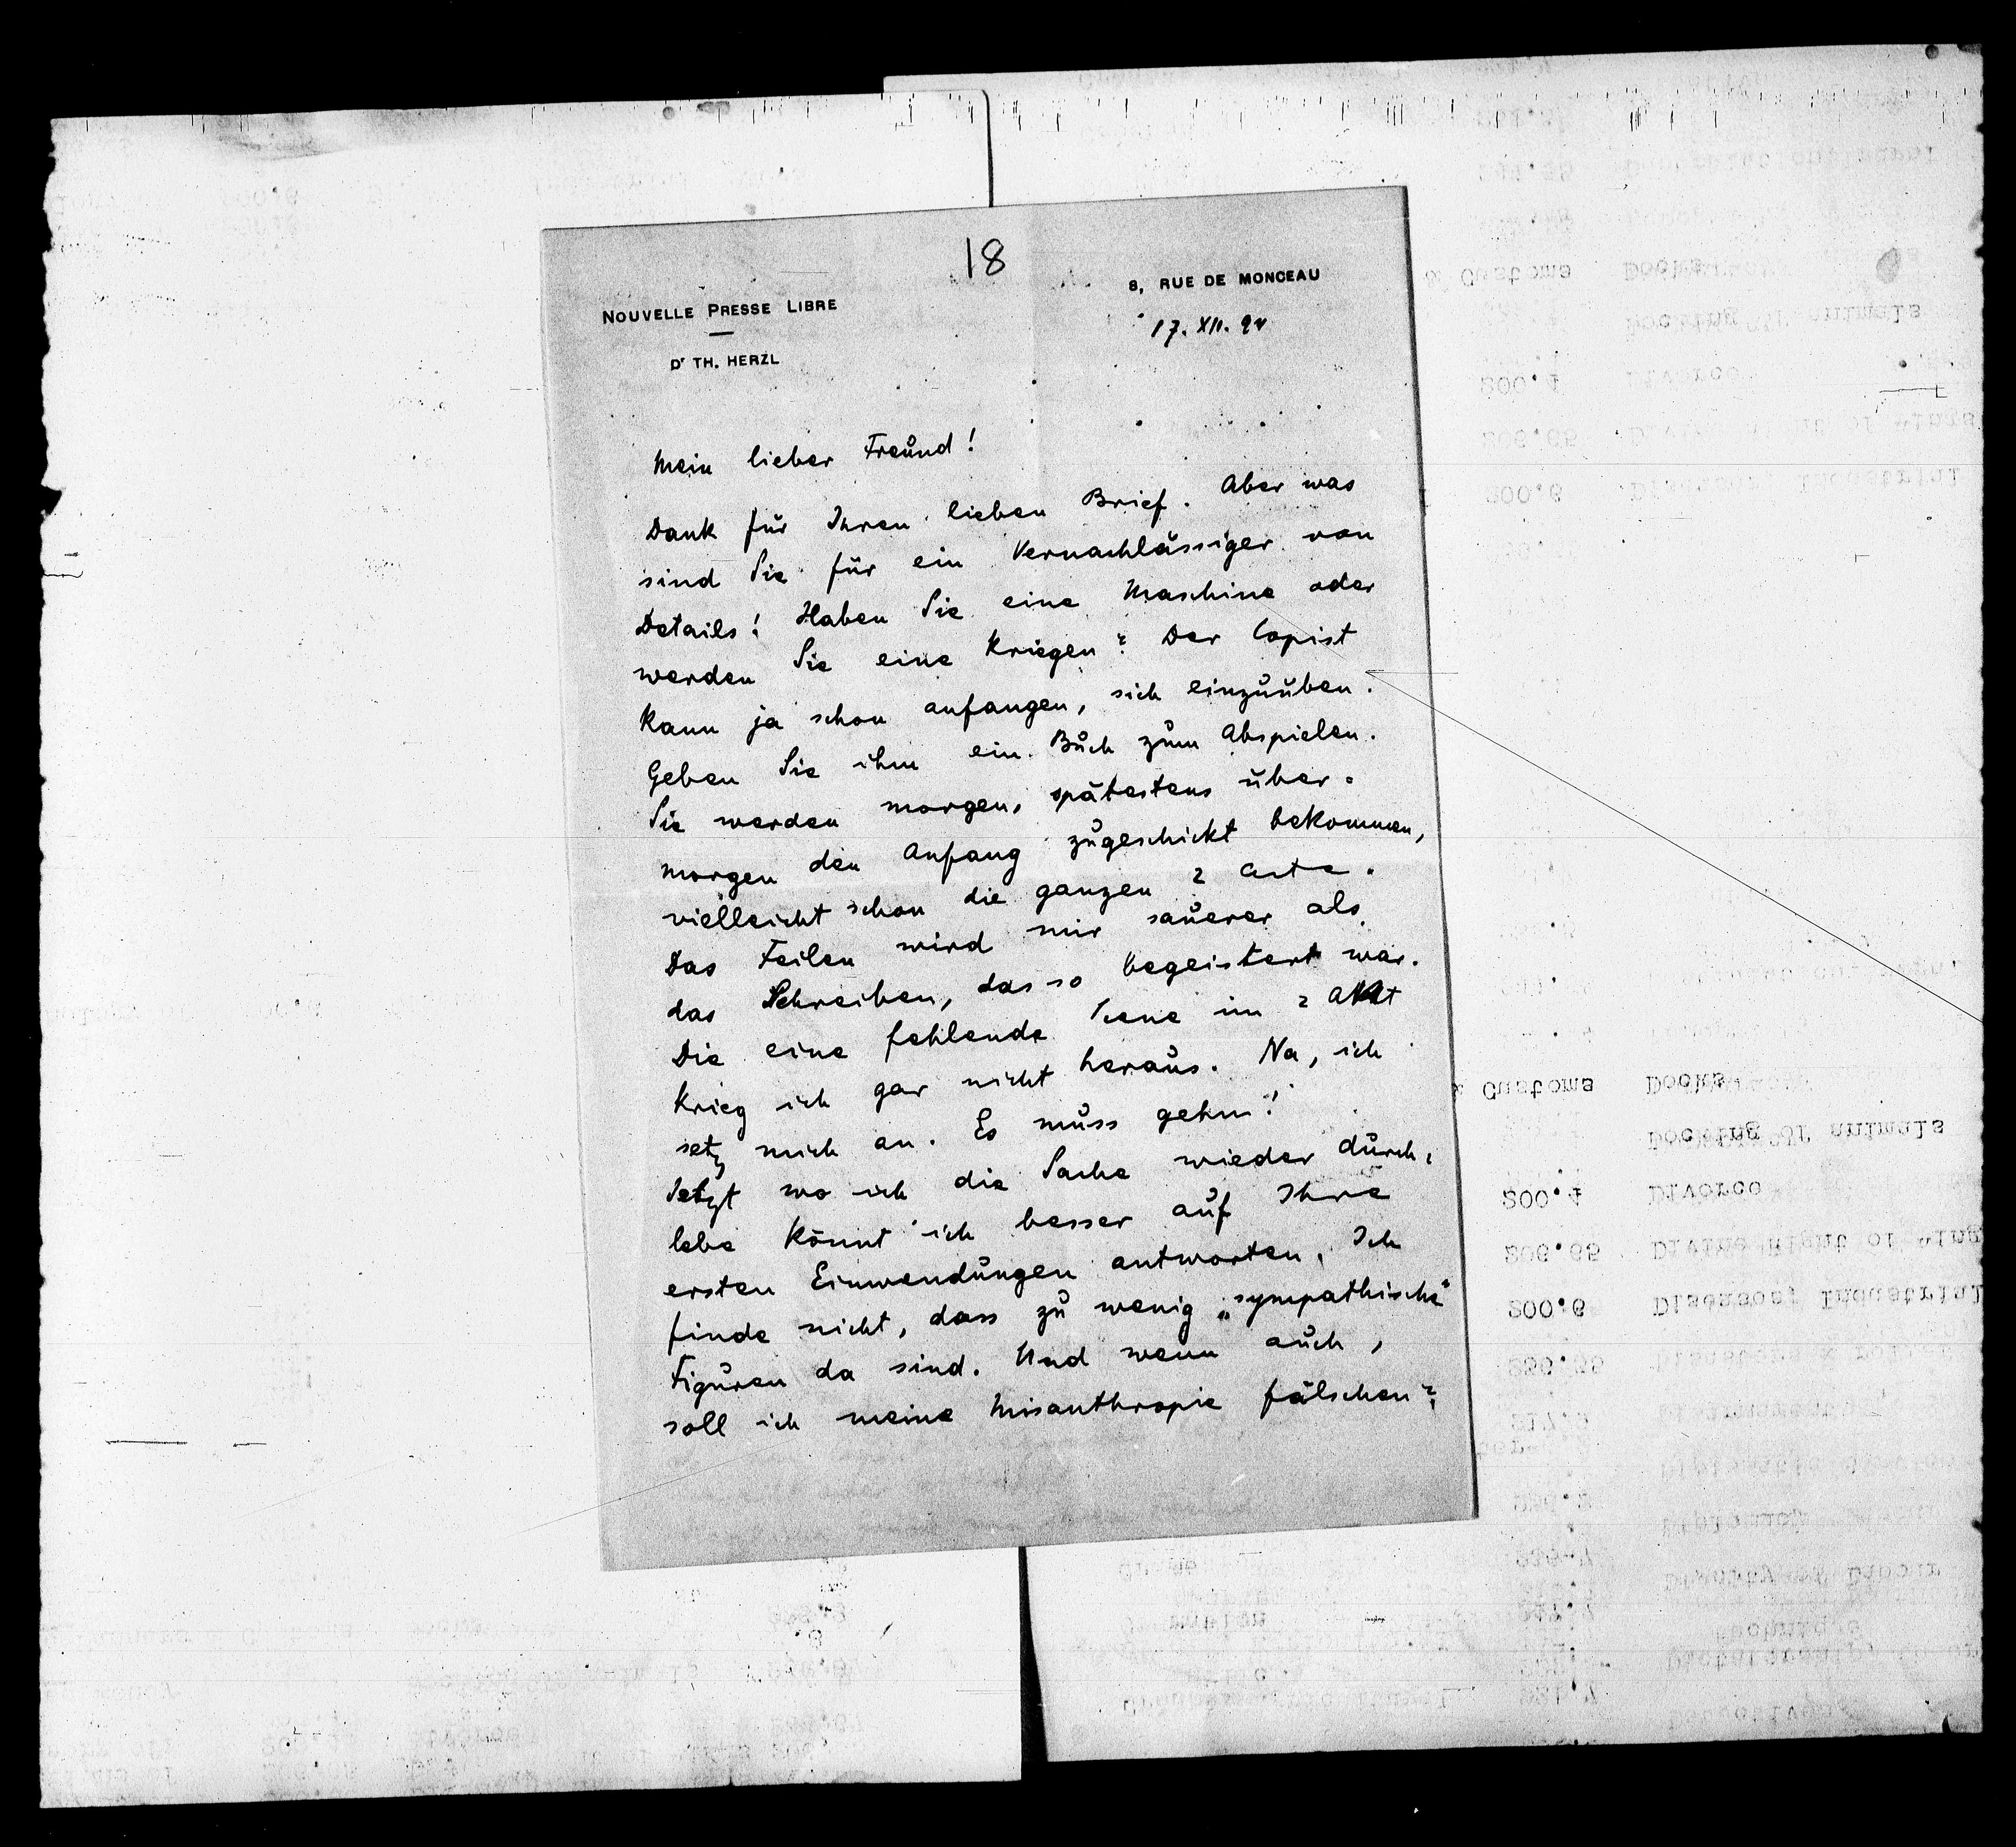 18
NOUVELLE PRESSE LIBRE
Dr TH. HERZL
8, RUE DE MONCEAU
17. XII. 94
Mein lieber Freund!
Dank für Ihren lieben Brief. Aber was
sind Sie für ein Vernachlässiger von
Details! Haben Sie eine Maschine oder
werden Sie eine kriegen? Der Copist
kann ja schon anfangen, sich einzuüben.
Geben Sie ihm ein Buch zum Abspielen.
Sie werden morgen, spätestens über-
morgen den Anfang zugeschickt bekommen,
vielleicht schon die ganzen 2 Acte.
Das Feilen wird mir sauerer als
das Schreiben, das so begeistert war.
Die eine fehlende Scene im 2 Akt
krieg ich gar nicht heraus. Na, ich
setz mich an. Es muss gehn!
Jetzt wo ich die Sache wieder durch-
lebe könnt' ich besser auf Ihre
ersten Einwendungen antworten. Ich
finde nicht, dass zu wenig „sympathische"
Figuren da sind. Und wenn auch,
soll ich meine Misanthropie fälschen?
Customs Docks
Docking of animals
200.4 Divorce
206.65 Divine Right of Kings
200.6 Diseases, Industrial